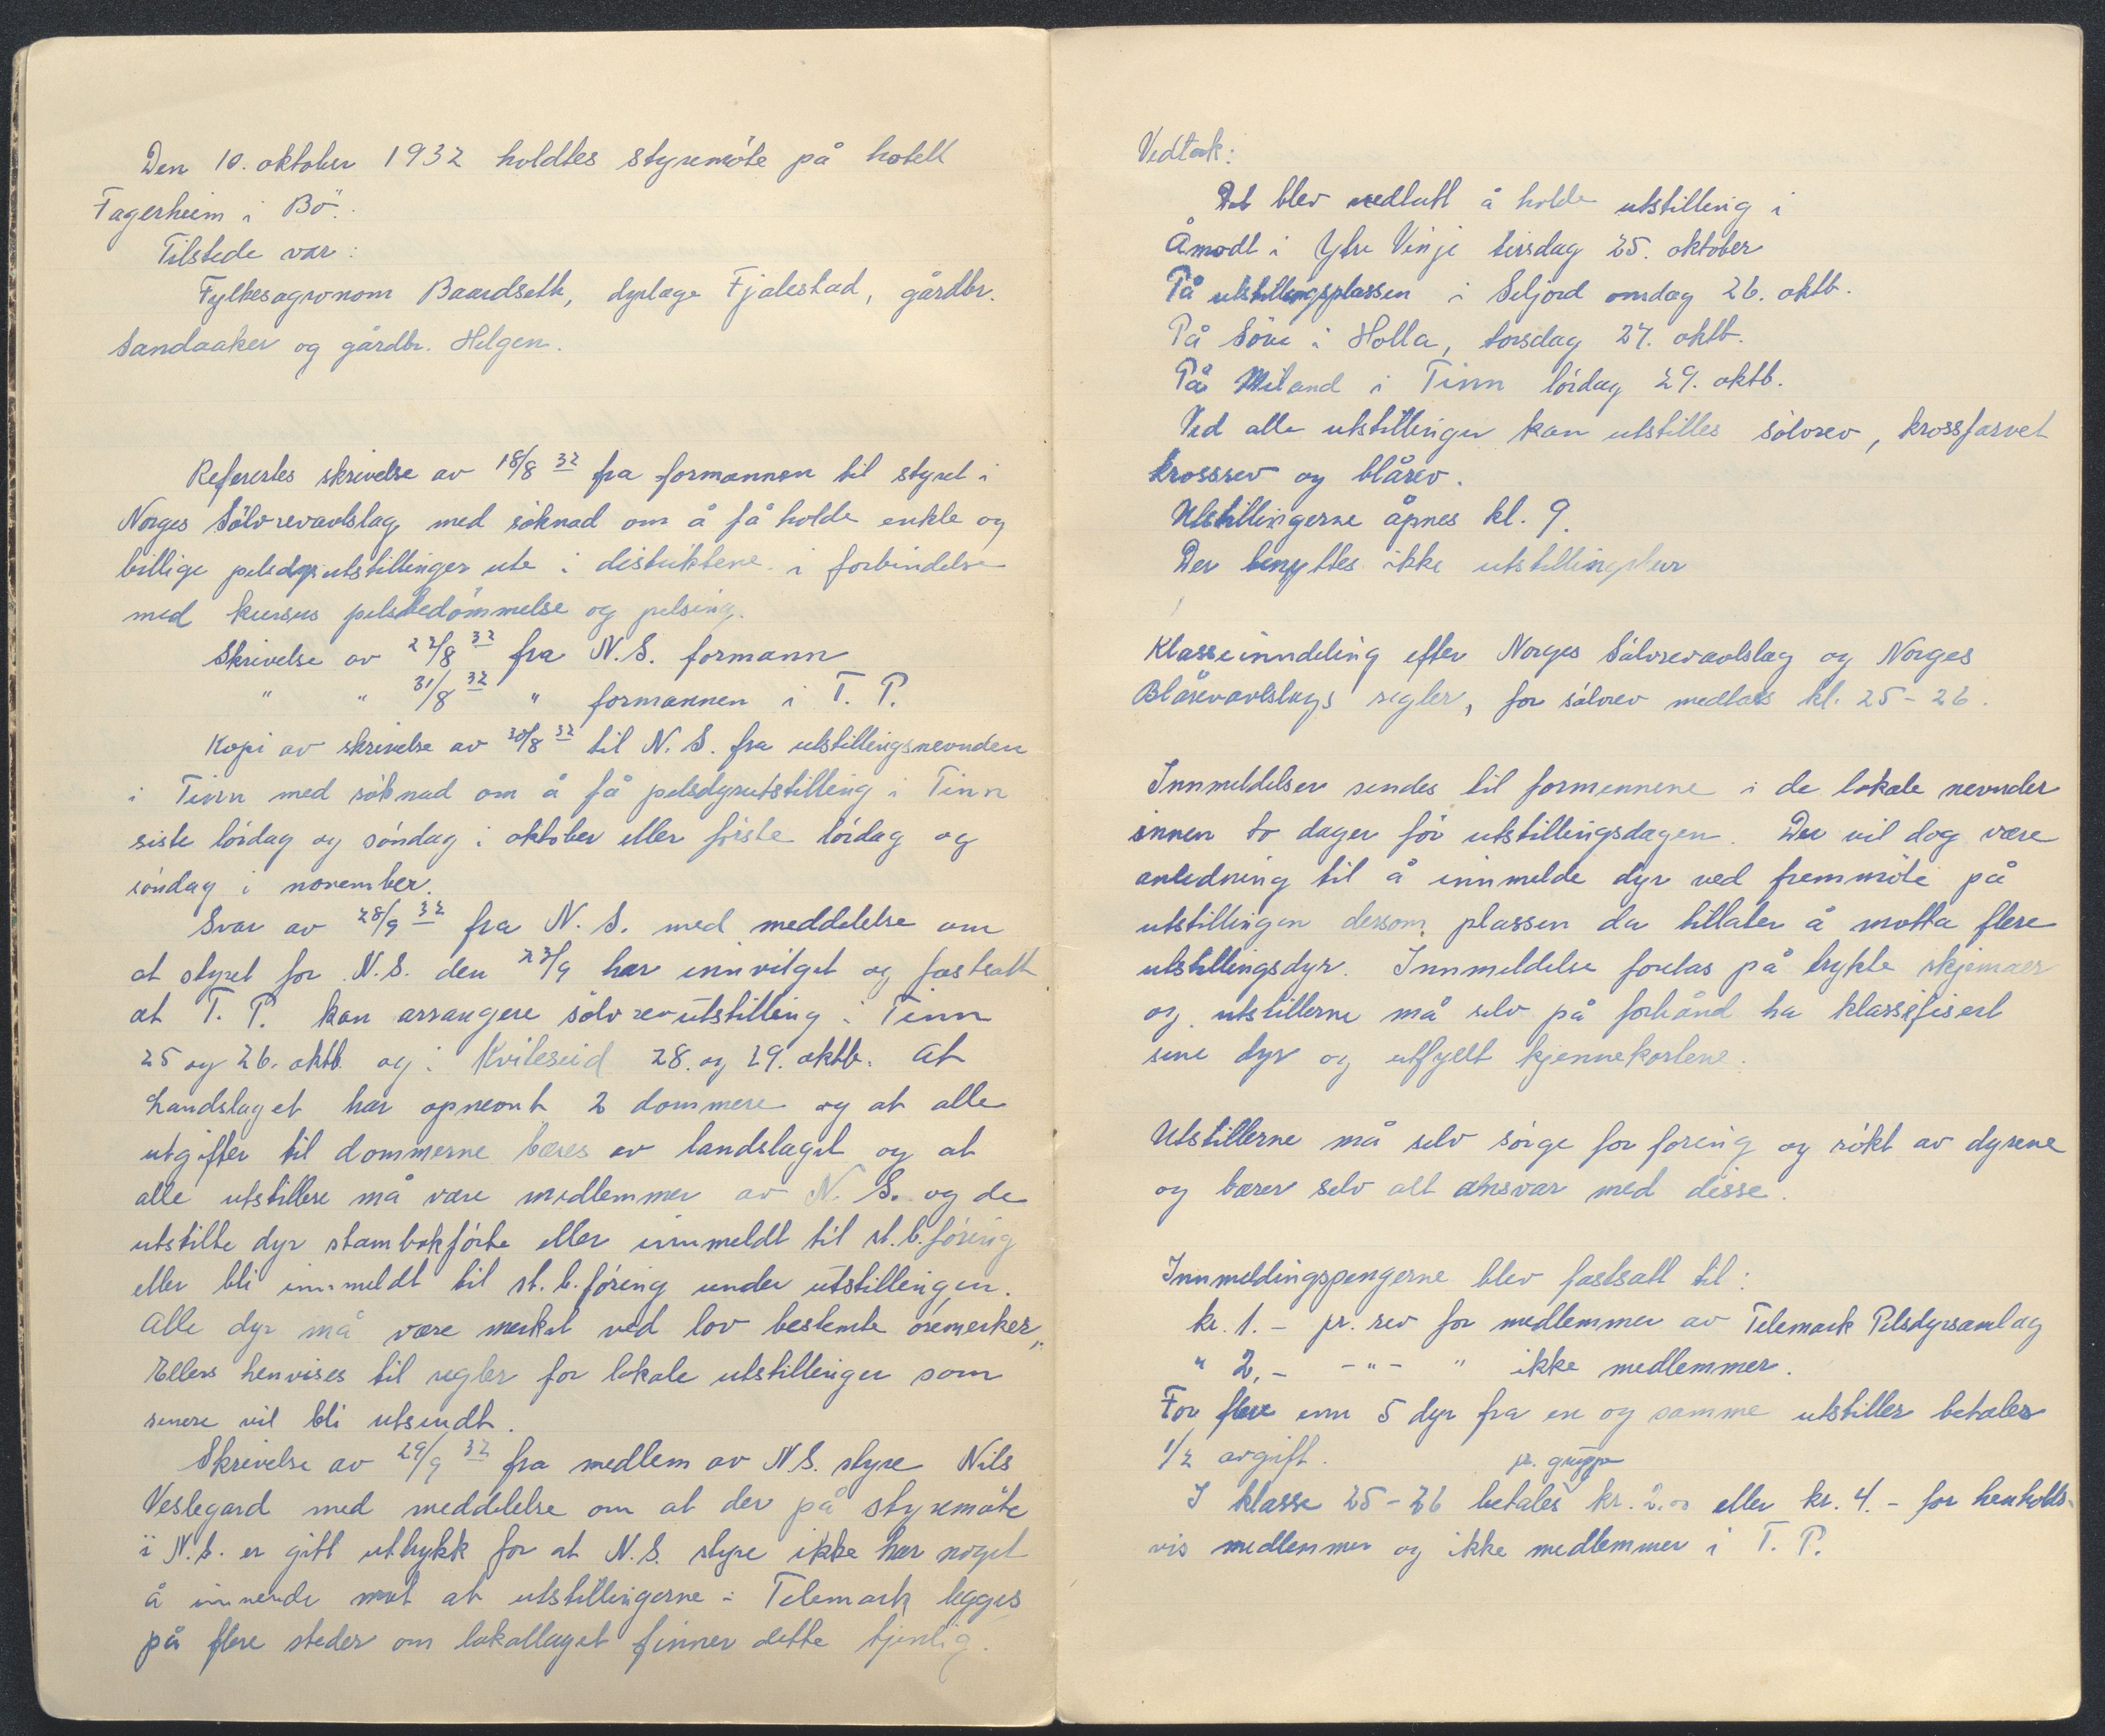 Den 10. oktober 1932 holdtes styremöte på hotell
Fagerheim i Bö.
Tilstede var:
Fylkesagronom Baardseth, dyrlæge Fjalestad, gårdbr.
Sandaaker og gårdbr. Helgen.
Referertes skrivelse av 18/8 32 fra formannen til styret i
Norges Sölvrevavlslag med söknad om å få holde enkle og
billige pelsdyrutstillinger ute i distriktene i forbindelse
med kursus pelsbedömmelse og pelsing.
Skrivelse av 22/8 32 fra N.S. formann
" " 31/8 32 " formannen i T. P.
Kopi av skrivelse av 30/8 32 til N. S. fra utstillingsnevnden
i Tinn med söknad om å få pelsdyrutstilling i Tinn
siste lördag og söndag i oktober eller förste lördag og
söndag i november.
Svar av 28/9 32 fra N. S. med meddelelse om
at styret for N.S. den 23/9 har innvilget og fastsatt
at T. P. kan arrangere sölvrevutstilling i Tinn
25 og 26. oktb. og i Kviteseid 28. og 29. oktb. At
Landslaget har opnevnt 2 dommere og at alle
utgifter til dommerne bæres av landslaget og at
alle utstillere må være medlemmer av N. S. og de
utstilte dyr stambokförte eller innmeldt til st. b. föring
eller bli innmeldt til st. b. föring under utstillingen.
Alle dyr må være merket ved lov bestemte öremerker.
Ellers henvises til regler for lokale utstillinger som
senere vil bli utsendt.
Skrivelse av 29/9 32 fra medlem av N.S. styre Nils
Veslegard med meddelelse om at der på styremöte
i N.S. er gitt uttrykk for at N.S. styre ikke har noget
å innvende mot at utstillingerne i Telemark legges
på flere steder om lokallaget finner dette tjenlig.
Vedtak:
Det blev vedtatt å holde utstilling i
Åmodt i Ytre Vinje tirsdag 25. oktober
På utstillingsplassen i Seljord onsdag 26. oktb.
På Söve i Holla, torsdag 27. oktb.
På Miland i Tinn lördag 29. oktb.
Ved alle utstillinger kan utstilles sölvrev, krossfarvet
krossrev og blårev.
Utstillingerne åpnes kl. 9.
Der benyttes ikke utstillingsbur
Klasseinndeling efter Norges Sölvrevavlslag og Norges
Blårevavlslags regler, for sölvrev medtas kl. 25-26.
Innmeldelser sendes til formennene i de lokale nevnder
innen to dager för utstillingsdagen. Der vil dog være
anledning til å innmelde dyr ved fremmöte på
utstillingen dersom plassen da tillater å motta flere
utstillingsdyr. Innmeldelse foretas på trykte skjemaer
og utstillerne må selv på forhånd ha klassifisert
sine dyr og utfyllt kjennekortene.
Utstillerne må selv sörge for foring og rökt av dyrene
og bærer selv alt ansvar med disse.
Innmeldingspengerne blev fastsatt til:
kr. 1.- pr. rev for medlemmer av Telemark Pelsdyrsamlag
" 2,- -"- " ikke medlemmer.
For flere enn 5 dyr fra en og samme utstiller betales
1/2 avgift.
pr. gruppe
I klasse 25-26 betales kr. 2.00 eller kr. 4.- for henholds-
vis medlemmer og ikke medlemmer i T. P.